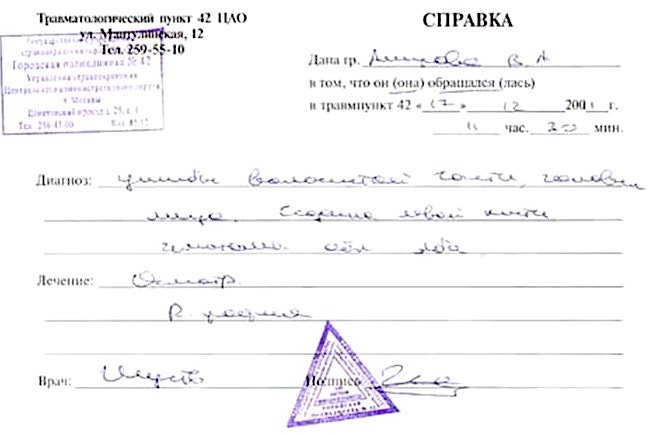 Травматологический пункт 42 ЦАО
ул. Мантулинская, 12
Тел. 259-55-10
Городская поликлиника № 42
Управления здравоохранения
Центрального административного округа
г. Москвы
СПРАВКА
Дана гр. В. А
в том, что он (она) обращался (лась)
в травмпункт 42 « 17 » 12 200 г.
час. мин.
Диагноз: ушибы волосистой части, головы
лица. Ссадина левой кисти
гематома обл лба
Лечение: Осмотр.
R. графия
Врач: Подпись